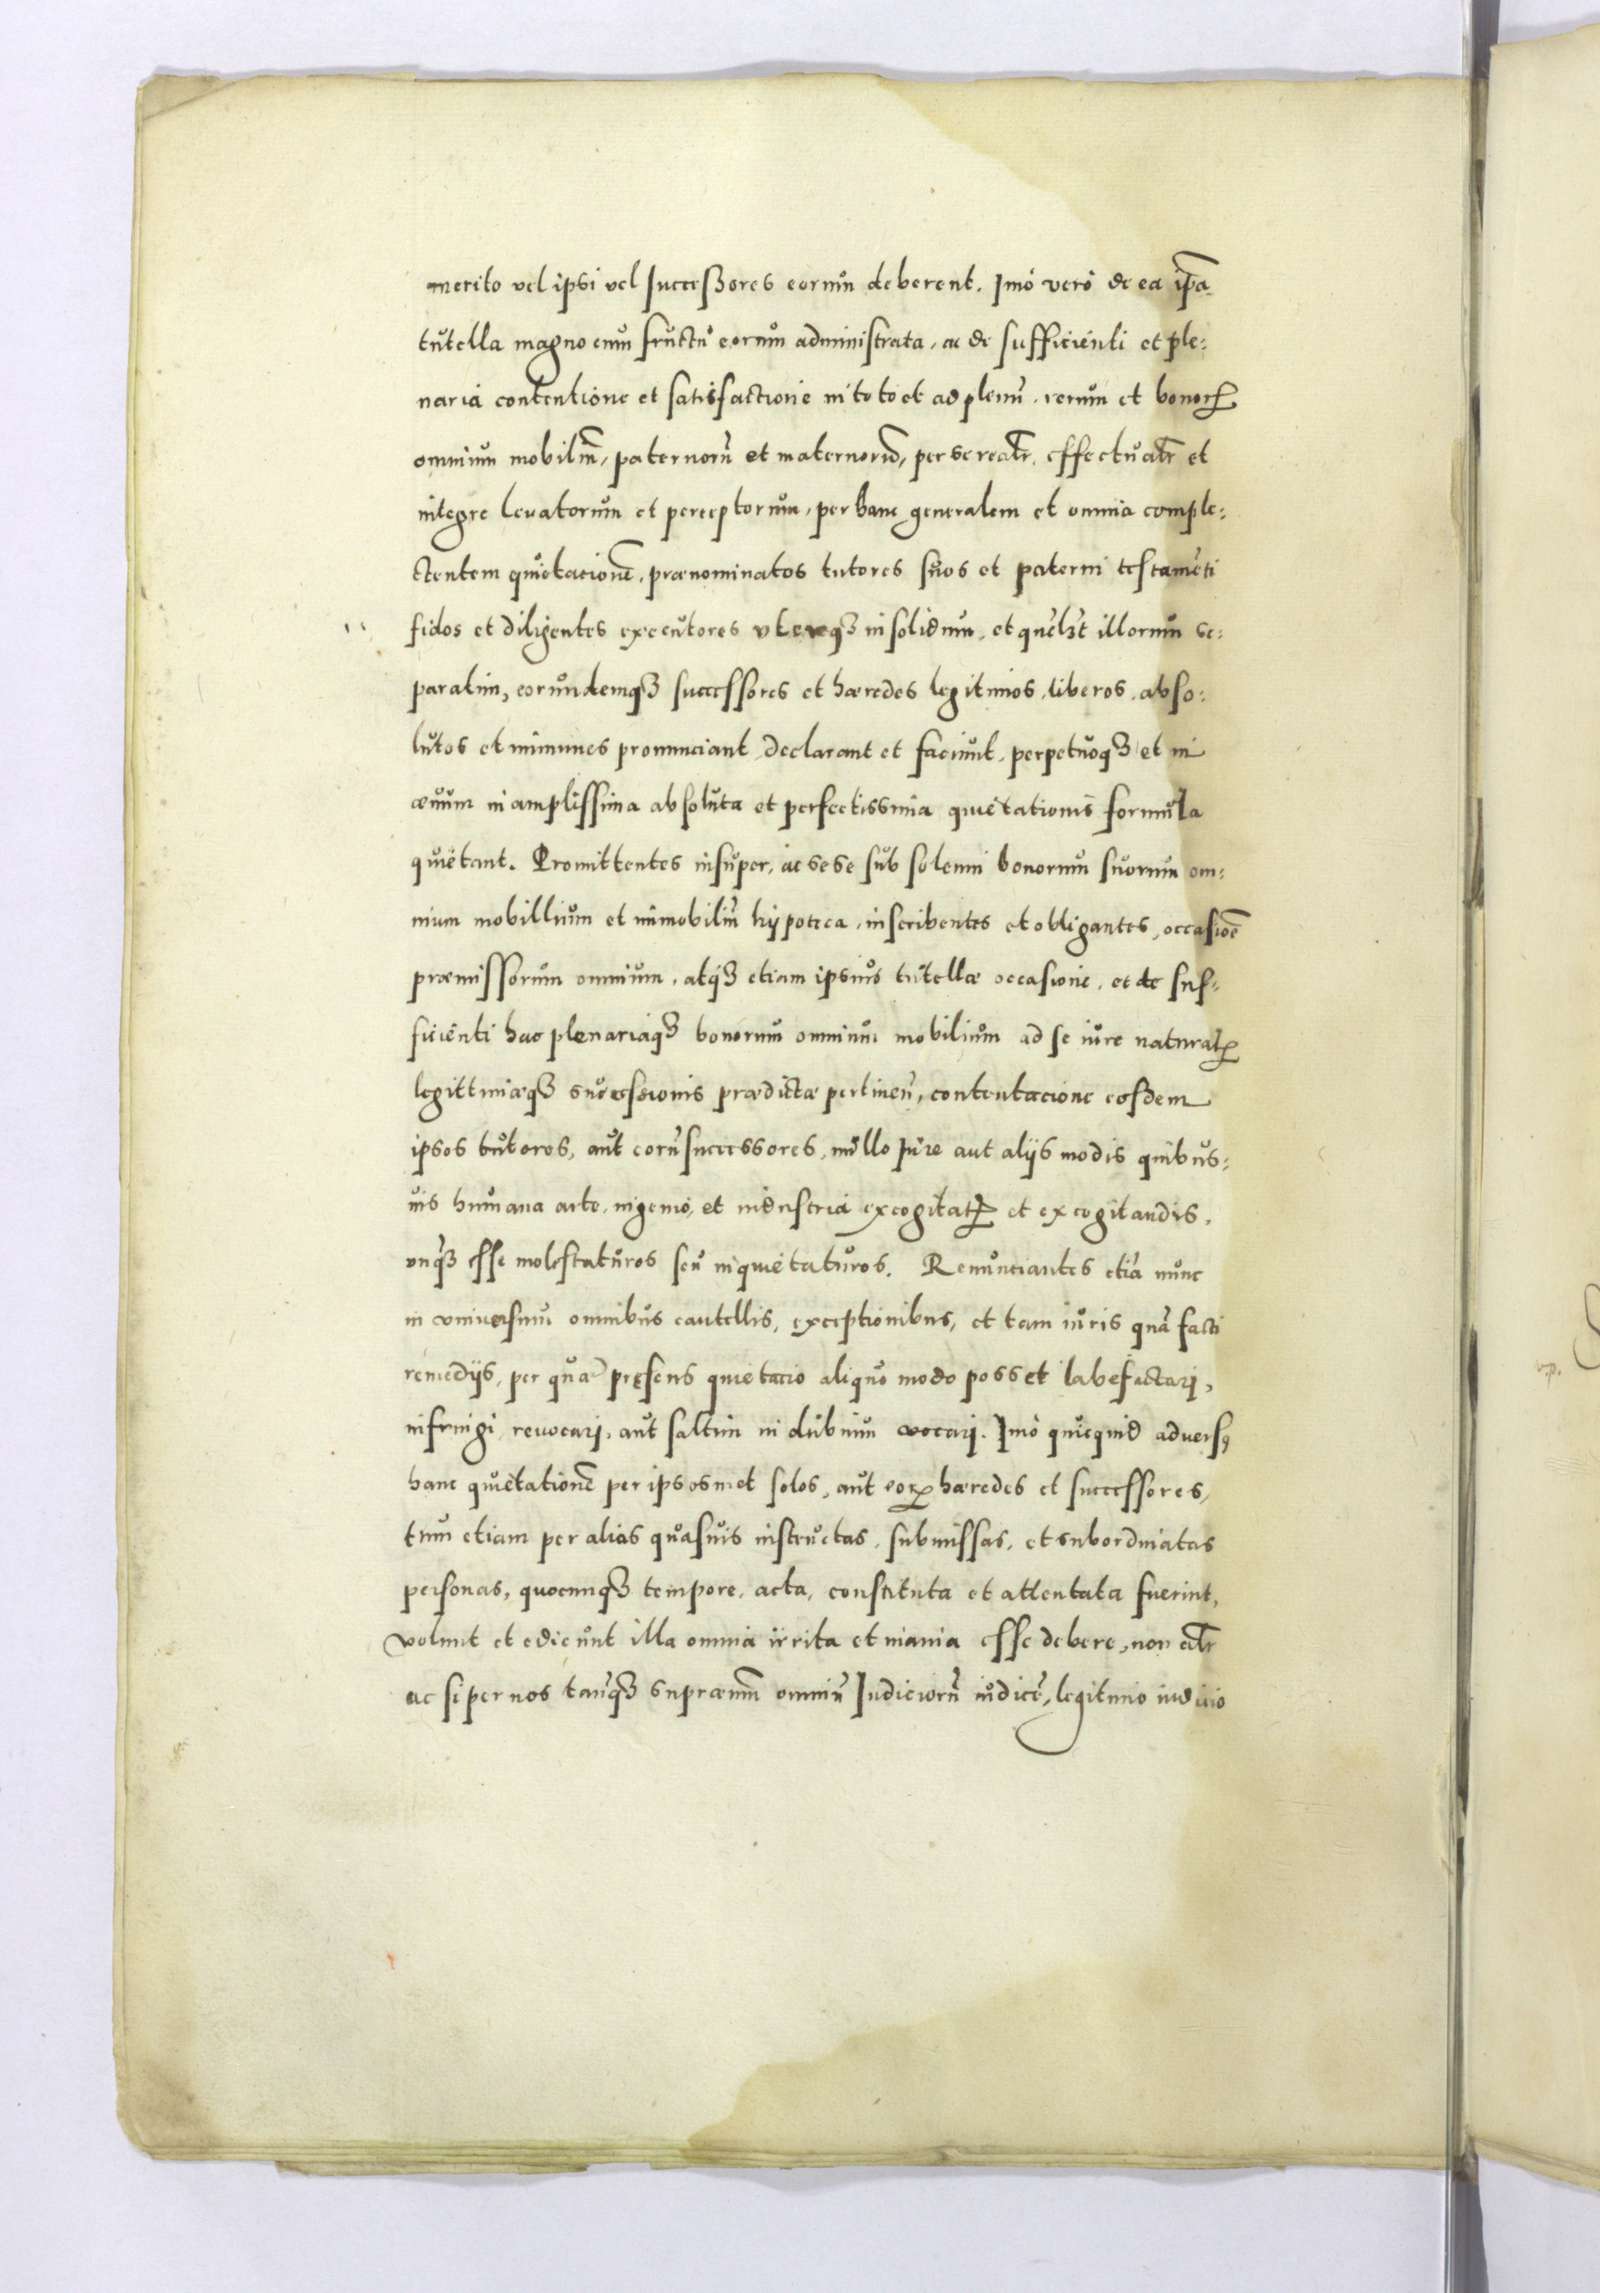 merito vel ipsi vel successores eorum deberent. Imo vero de ea ip̄a
tutella magno cum fructu eorum administrata, ac de sufficienti et ple:
naria contentione et satisfactione in toto et ad plenū. rerum et bonorꝝ
omnium mobiliū, paternorū et maternorū, per se realr̄, effectualr̄ et
integre levatorum et perceptorum, per hanc generalem et omnia comple:
ctentem quietationē, prænominatos tutores suos et paterni testamēti
fidos et diligentes executores uterqꝫ in solidum, et quēlꝫt illorum se:
paratim, eorundemqꝫ successores et hæredes legitimos, liberos, abso:
lutos et immunes pronunciant, declarant et faciunt, perpetuoqꝫ et in
ævum in amplissima absoluta et perfectissima quietationis formula
quietant. Promittentes insuper, ac sese sub solemni bonorum suorum om:
nium mobillium et immobiliū hypoteca, inscribentes et obligantes, occasiōe
præmissorum omnium, atqꝫ etiam ipsius tutellæ occasione, et de suf:
ficienti hac plenariaqꝫ bonorum omnium mobilium ad se iure naturalꝫ
legittimæqꝫ successionis prædictæ pertineñ, contentacione eosdem
ipsos tutores, aut eorū successores, nullo Jure aut alijs modis quibus:
uis humana arte, ingenio, et industria excogitatꝫ et excogitandis,
unqꝫ esse molestaturos seu inquietaturos. Renunciantes etiā nunc
in universum omnibus cautellis, exceptionibus, et tam iuris quā facti
remedijs, per quæ pręsens quietacio aliquo modo posset labefactari,
infringi, revocari, aut saltim in dubium vocari. Imo quicquid adversꝰ
hanc quietationē per ipsosmet solos, aut eorꝝ hæredes et successores,
tum etiam per alias quasuis instructas, submissas, et subordinatas
personas, quocunqꝫ tempore, acta, constituta et attentata fuerint,
volunt et edicunt illa omnia irrita et inania esse debere, non alr̄
ac si per nos tanqꝫ supræmū omniū Iudiciorū iudicē, legitimo iudicio